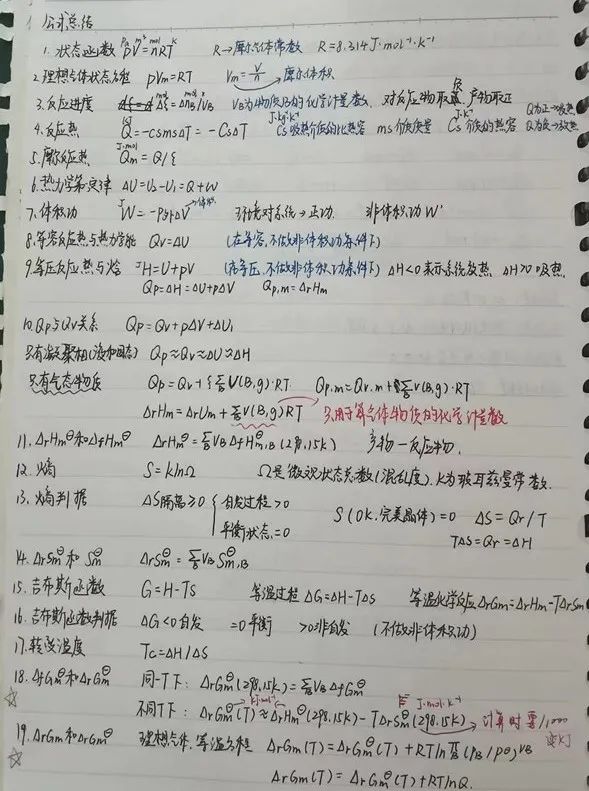 公式总结
1. 状态函数 pV=nRT R→摩尔气体常数 R=8.314 J·mol⁻¹·K⁻¹
2. 理想气体状态方程 pVm=RT Vm=V/n 摩尔体积
3. 反应进度 Δξ=ΔnB/νB νB为物质B的化学计量数, 对反应物取负, 产物取正
4. 反应热 Q=-csmsΔT=-CsΔT Cs吸热介质的比热容 ms介质质量 Cs介质的热容 Q为正→吸热 Q为负→放热
5. 摩尔反应热 Qm=Q/ξ
6. 热力学第一定律 ΔU=U₂-U₁=Q+W
7. 体积功 W=-p外ΔV →体积 环境对系统→正功. 非体积功W'
8. 等容反应热与热力学能 Qv=ΔU (在等容,不做非体积功条件下)
9. 等压反应热与焓 H=U+pV (在等压,不做非体积功条件下) ΔH<0表示系统放热 ΔH>0吸热.
Qp=ΔH=ΔU+pΔV Qp,m=ΔrHm
10. Qp与Qv关系 Qp=Qv+pΔV+ΔU₁
只有凝聚相(液和固态) Qp≈Qv≈ΔU≈ΔH
只有气态物质 Qp=Qv+ξΣν(B,g)·RT Qp,m=Qv,m+Σν(B,g)·RT
ΔrHm=ΔrUm+Σν(B,g)RT 只用于算气体物质的化学计量数
11. ΔrHm⊖和ΔfHm⊖ ΔrHm⊖=ΣνBΔfH⊖m,B(298.15K) 产物-反应物.
12. 熵 S=klnΩ Ω是微观状态总数(混乱度). k为玻耳兹曼常数.
13. 熵判据 ΔS隔离≥0 { 自发过程>0 S(0K,完美晶体)=0 ΔS=Qr/T
平衡状态=0 TΔS=Qr=ΔH
14. ΔrSm⊖和Sm⊖ ΔrSm⊖=ΣνBS⊖m,B
15. 吉布斯函数 G=H-TS 等温过程ΔG=ΔH-TΔS 等温化学反应ΔrGm=ΔrHm-TΔrSm
16. 吉布斯函数判据 ΔG<0自发 =0平衡 >0非自发 (不做非体积功)
17. 转变温度 Tc=ΔH/ΔS
18. ΔfGm⊖和ΔrGm⊖ 同一T下: ΔrGm⊖(298.15K)=ΣνBΔfGm⊖
kJ·mol⁻¹ J·mol·K⁻¹
不同T下: ΔrGm⊖(T)≈ΔrHm⊖(298.15K)-TΔrSm⊖(298.15K) →计算时要/1000变KJ
19. ΔrGm和ΔrGm⊖ 理想气体,等温方程 ΔrGm(T)=ΔrGm⊖(T)+RTlnΠ(pB/p⊖)νB
ΔrGm(T)=ΔrGm⊖(T)+RTlnQ.